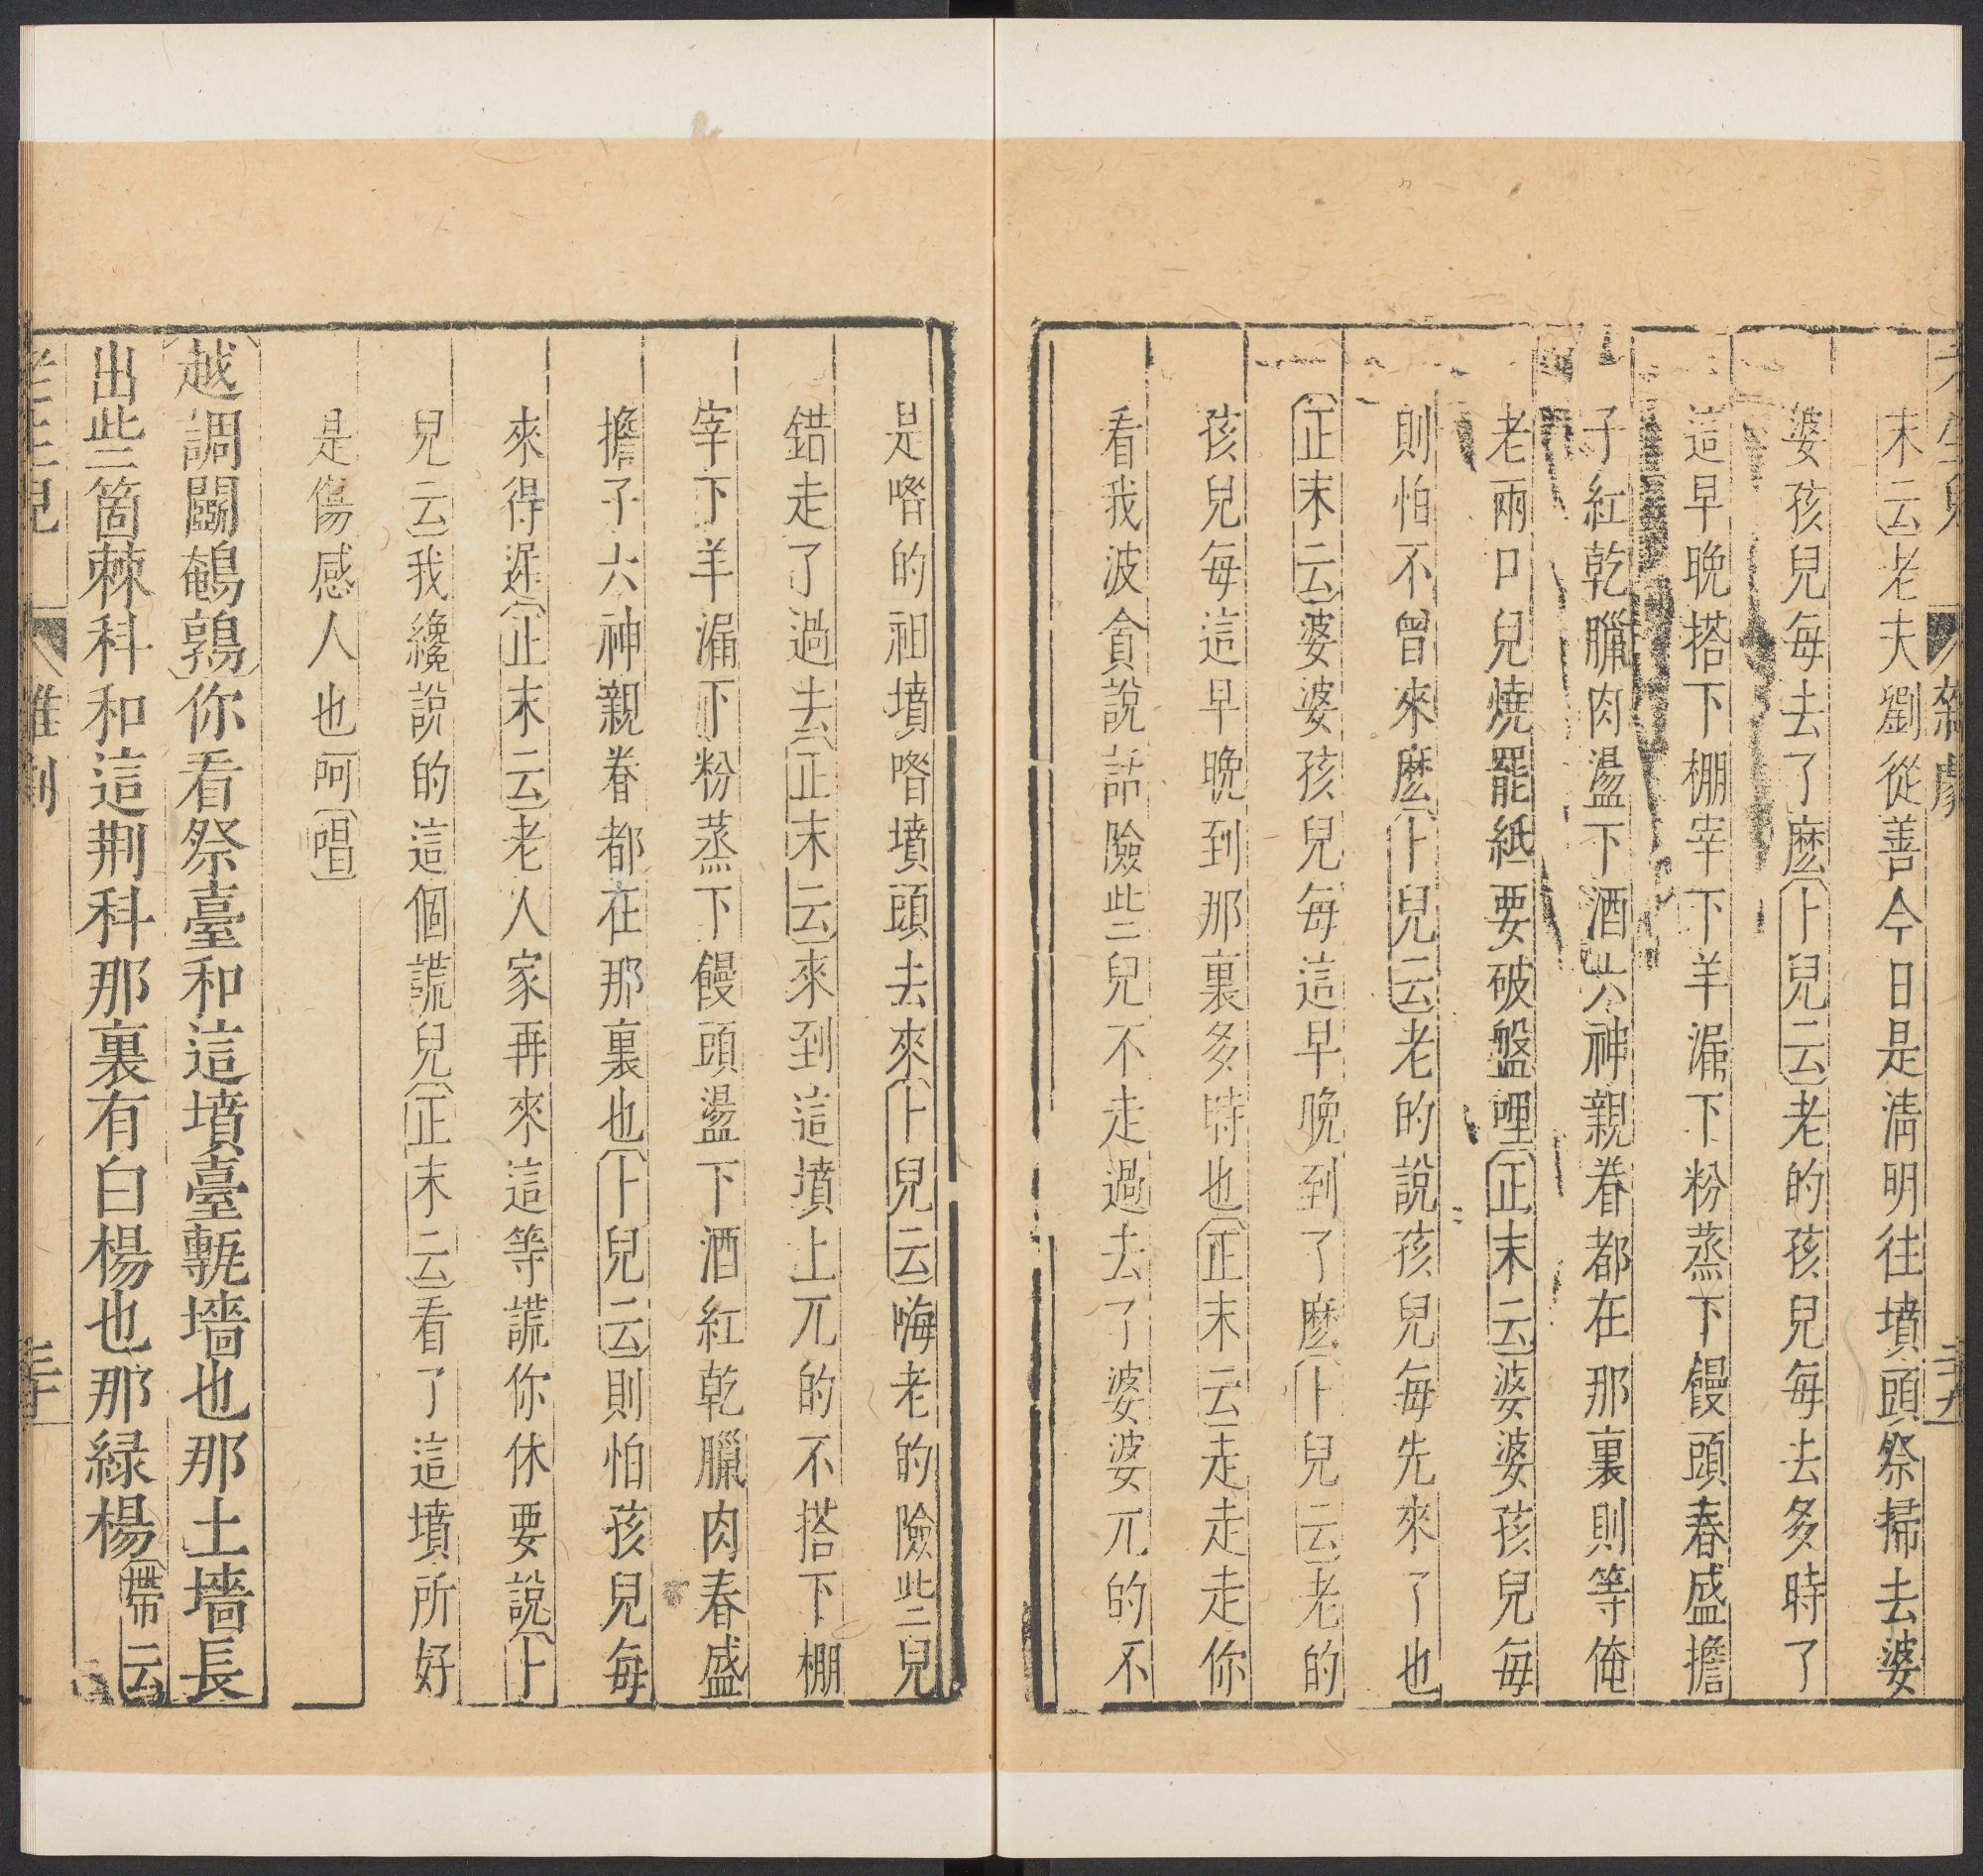 末云老夫劉從善今日是淸明往墳頭祭掃去婆
婆孩兒每去了麽卜兒云老的孩兒每去多時了
這早晚搭下棚宰下羊漏下粉蒸下饅頭春盛擔
子紅乾臘肉盪下酒六神親眷都在那裏則等俺
老兩口兒燒罷紙要破盤哩正末云婆婆孩兒每
則怕不曾來麽卜兒云老的說孩兒每先來了也
正末云婆婆孩兒每這早晚到了麽卜兒云老的
孩兒每這早晚到那裏多時也正末云走走走你
看我波貪說話險些兒不走過去了婆婆兀的不
是喒的祖墳喒墳頭去來卜兒云嗨老的險些兒
錯走了過去正末云來到這墳上兀的不搭下棚
宰下羊漏下粉蒸下饅頭盪下酒紅乾臘肉春盛
擔子六神親眷都在那裏也卜兒云則怕孩兒每
來得遲正末云老人家再來這等謊你休要說卜
兒云我纔說的這個謊兒正末云看了這墳所好
是傷感人也呵唱
越調鬭鵪鶉你看祭臺和這墳臺甎墻也那土墻長
出些箇棘科和這荆科那裏有白楊也那緑楊帶云
老生兒 雜劇 三十